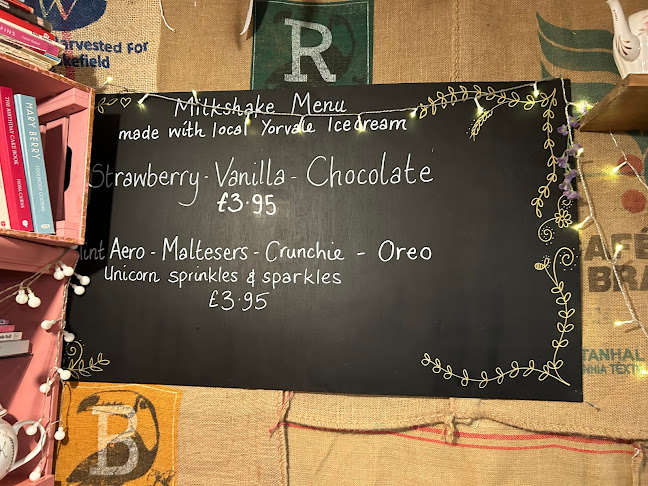 Harvested For
kefield
R
Milkshake Menu
made with local Yorvale Icecream
Strawberry - Vanilla - Chocolate
£3.95
Mint Aero - Maltesers - Crunchie - Oreo
Unicorn sprinkles & sparkles
£3.95
THE BIRTHDAY CAKE BOOK
FIONA CAIRNS
MARY BERRY
CAFÉ
BRA
TANHAL
NNIA TEXT
B